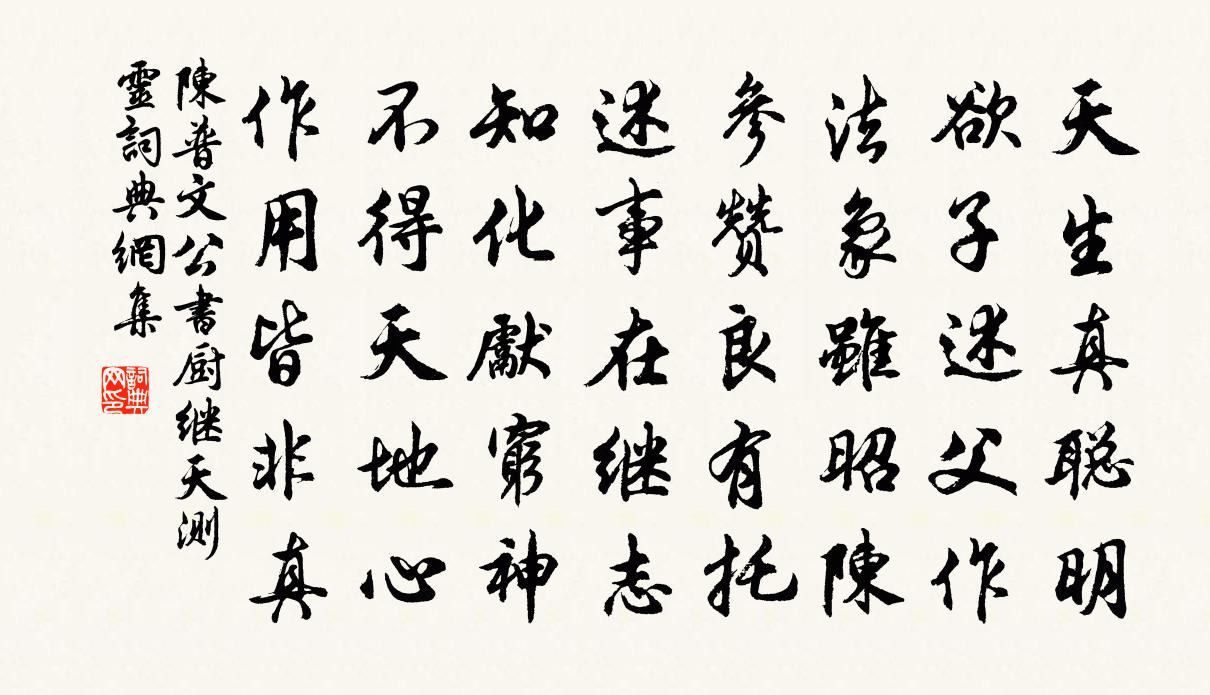 天生真聪明
欲子述父作
法象雖昭陳
參赞良有托
述事在继志
知化獻窮神
不得天地心
作用皆非真
陳普文公書厨继天測
靈詞典網集
詞典
网印